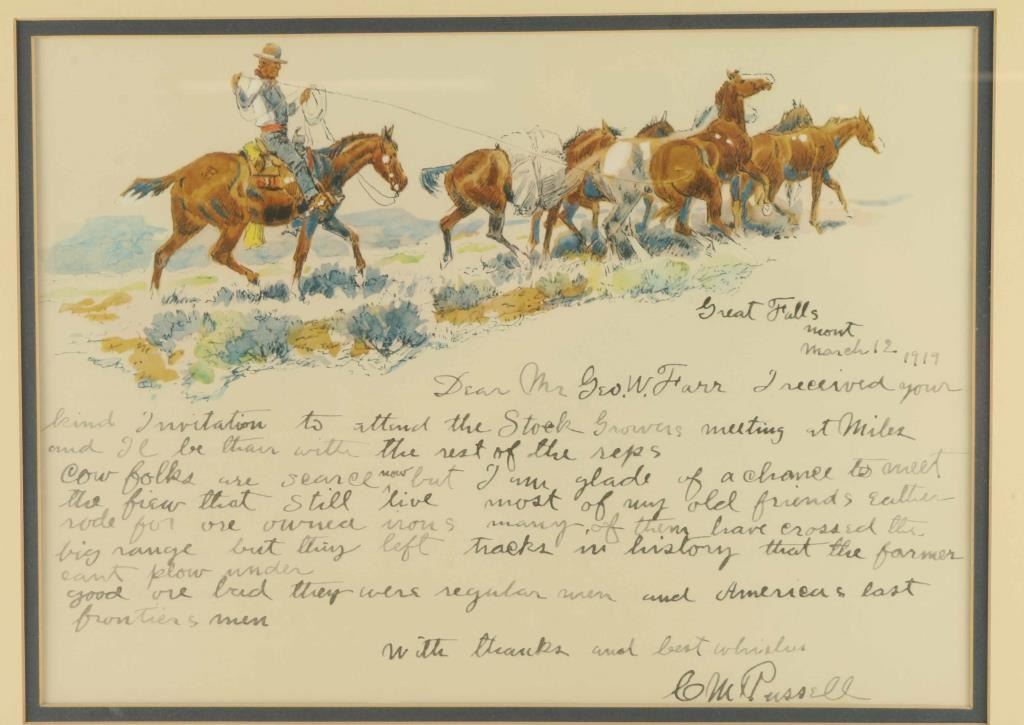 Great Falls
Mont
March 12 1919
Dear Mr Geo. W. Farr I received your
kind Invitation to attend the Stock Growers meeting at Miles
and Il be thair with the rest of the reps
cow folks are scarce now but I am glade of a chance to meet
the fiew that still live most of my old friends eather
rode for ore owned irons many of them have crossed the
big range but they left tracks in history that the farmer
cant plow under
good ore bad they were regular men and Americas last
frontiers men
With thanks and best whishes
C M Russell